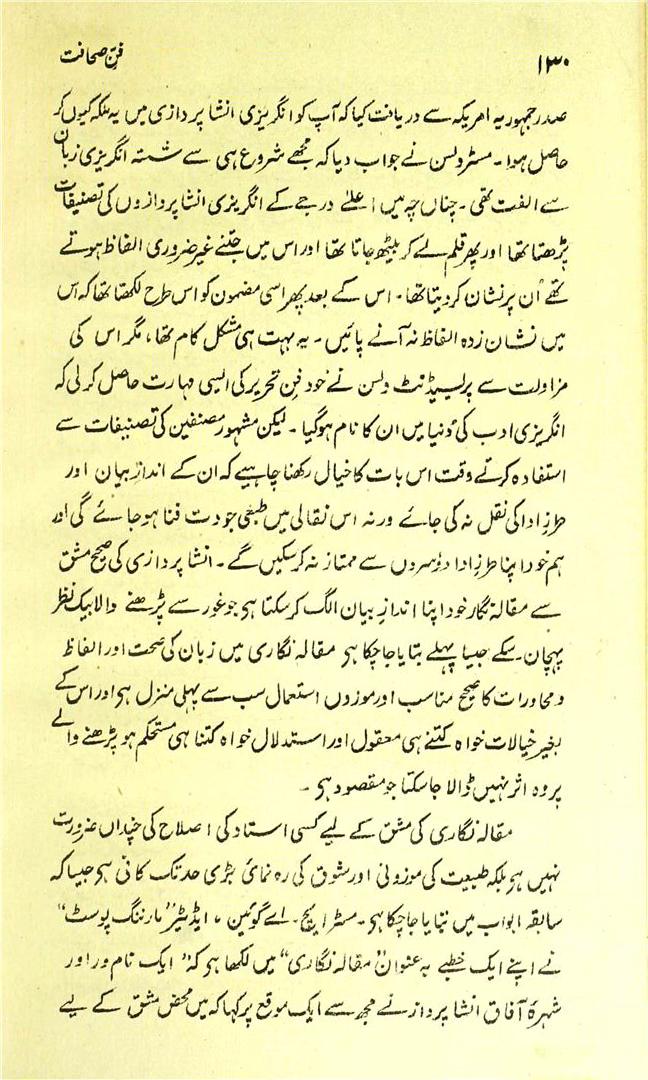 ۱۳۰ فنِ صحافت
صدر جمہوریہ امریکہ سے دریافت کیا کہ آپ کو انگریزی انشا پردازی میں یہ ملکہ کیوں کر
حاصل ہوا ۔ مسٹر ولسن نے جواب دیا کہ مجھے شروع ہی سے شستہ انگریزی زبان
سے الفت تھی ۔ چناں چہ میں اعلےٰ درجے کے انگریزی انشا پردازوں کی تصنیفات
پڑھتا تھا اور پھر قلم لے کر بیٹھ جاتا تھا اور اس میں جتنے غیر ضروری الفاظ ہوتے
تھے اُن پر نشان کر دیتا تھا ۔ اس کے بعد پھر اسی مضمون کو اس طرح لکھتا تھا کہ اس
میں نشان زدہ الفاظ نہ آنے پائیں ۔ یہ بہت ہی مشکل کام تھا ، مگر اس کی
مزاولت سے پریسیڈنٹ ولسن نے خود فنِ تحریر کی ایسی مہارت حاصل کر لی کہ
انگریزی ادب کی دُنیا میں ان کا نام ہو گیا ۔ لیکن مشہور مصنفین کی تصنیفات سے
استفادہ کرتے وقت اس بات کا خیال رکھنا چاہیے کہ ان کے اندازِ بیان اور
طرزِ ادا کی نقل نہ کی جائے ورنہ اس نقالی میں طبعی جودت فنا ہو جائے گی اور
ہم خود اپنا طرزِ ادا دوسروں سے ممتاز نہ کر سکیں گے ۔ انشا پردازی کی صحیح مشق
سے مقالہ نگار خود اپنا اندازِ بیان الگ کر سکتا ہی جو غور سے پڑھنے والا بیک نظر
پہچان سکے جیسا پہلے بتایا جا چکا ہی مقالہ نگاری میں زبان کی صحت اور الفاظ
و محاورات کا صحیح مناسب اور موزوں استعمال سب سے پہلی منزل ہی اور اس کے
بغیر خیالات خواہ کتنے ہی معقول اور استدلال خواہ کتنا ہی مستحکم ہو پڑھنے والے
پر وہ اثر نہیں ڈالا جا سکتا جو مقصود ہی ۔
مقالہ نگاری کی مشق کے لیے کسی استاد کی اصلاح کی چنداں ضرورت
نہیں ہی بلکہ طبیعت کی موزونی اور شوق کی رہ نمائی بڑی حد تک کافی ہی جیسا کہ
سابقہ ابواب میں بتایا جا چکا ہی ۔ مسٹر ایچ ۔ اے گوئین ، ایڈیٹر ”مارننگ پوسٹ“
نے اپنے ایک خطبے بہ عنوان ”مقالہ نگاری“ میں لکھا ہی کہ ”ایک نام ور اور
شہرۂ آفاق انشا پرداز نے مجھ سے ایک موقع پر کہا کہ میں محض مشق کے لیے